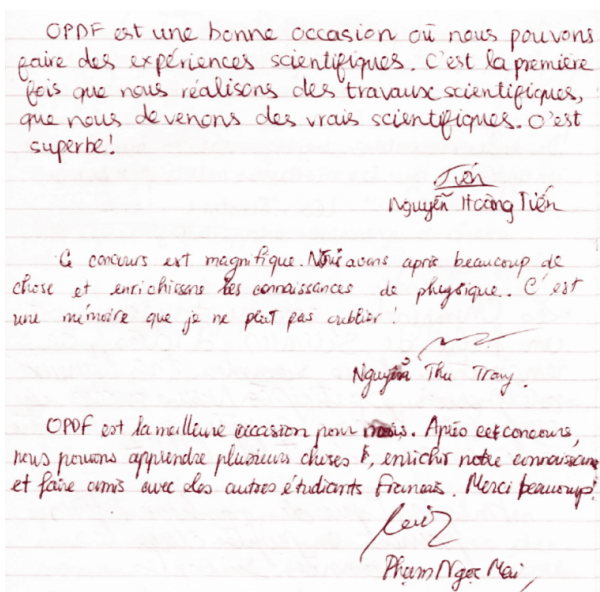 OPDF est une bonne occasion où nous pouvons
faire des expériences scientifiques. C'est la première
fois que nous réalisons des travaux scientifiques,
que nous devenons des vrais scientifiques. C'est
superbe!
Tiến
Nguyễn Hoàng Tiến
Ce concours est magnifique. Nous avons apris beaucoup de
chose et enrichissons les connaissances de physique. C'est
une mémoire que je ne peut pas oublier!
Nguyễn Thu Trang.
OPDF est la meilleure occasion pour nous. Après cet concours,
nous pouvons apprendre plusieurs choses, enrichir notre connaissance
et faire amis avec des autres étudiants français. Merci beaucoup!
Phạm Ngọc Mai